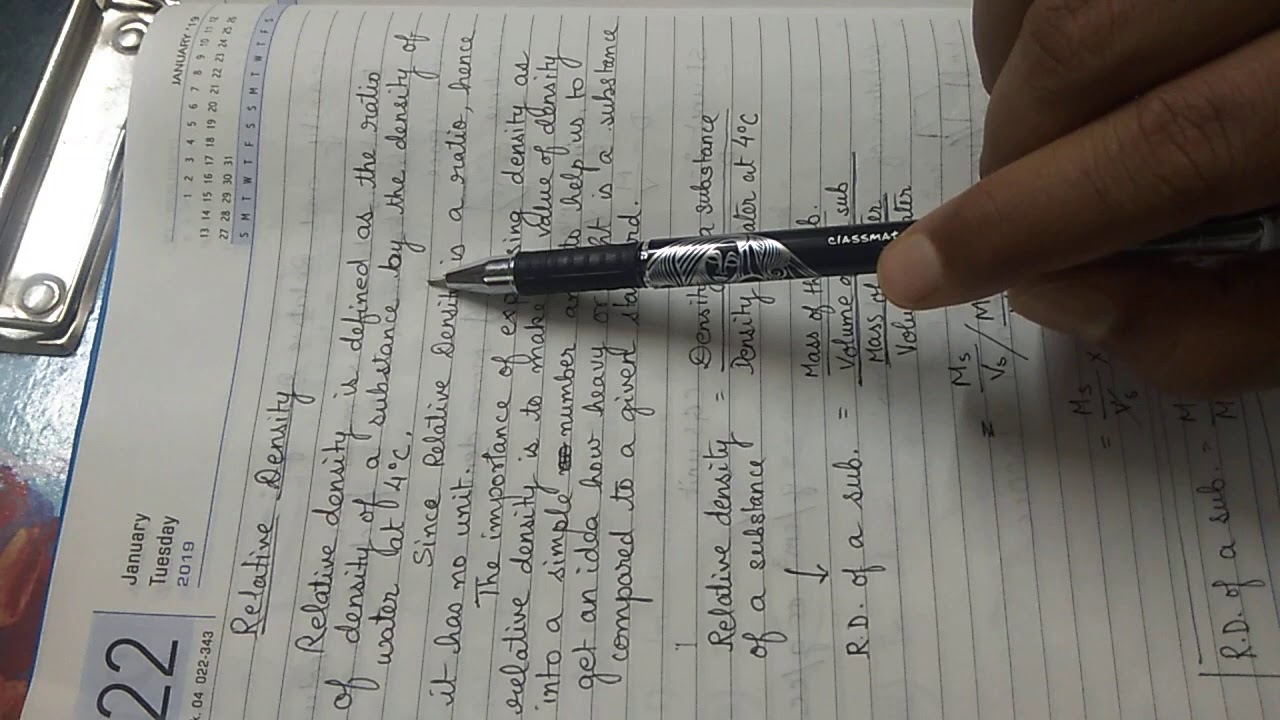 22
k. 04 022-343
January
Tuesday
2019
JANUARY '19
1 2 3 4 5
6 7 8 9 10 11 12
13 14 15 16 17 18 19
20 21 22 23 24 25 26
27 28 29 30 31
S M T W T F S S M T W T F S
Relative Density
Relative density is defined as the ratio
of density of a substance by the density of
water (at 4°C.
Since Relative Density is a ratio, hence
it has no unit.
The importance of expressing density as
relative density is to make value of density
into a simple number to help us to
get an idea how heavy or is a substance
compared to a given standard.
Relative density = Density a substance
of a substance Density water at 4°C
↓ Mass of the sub.
R.D. of a sub. = Volume of sub
Mass of
Volu
= Ms
Vs / M
= Ms
Vs ×
R.D. of a sub. = M
M
CLASSMA